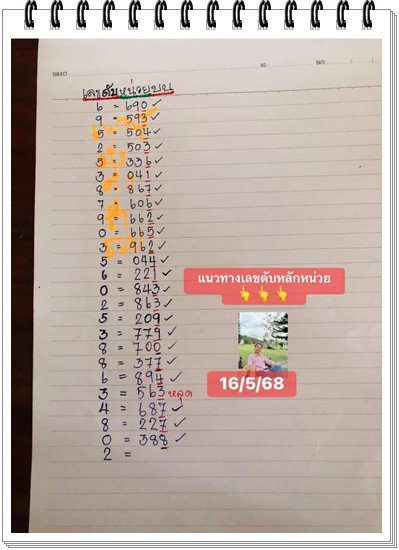 SUBJECT :
NO :
DATE / /
เลขดับหน่วยบน
6 = 690 ✓
9 = 593 ✓
5 = 504 ✓
2 = 503 ✓
5 = 336 ✓
3 = 041 ✓
8 = 867 ✓
7 = 606 ✓
9 = 662 ✓
0 = 665 ✓
3 = 962 ✓
5 = 044 ✓
6 = 221 ✓
0 = 843 ✓
2 = 863 ✓
5 = 209 ✓
3 = 779 ✓
8 = 700 ✓
8 = 377 ✓
6 = 894 ✓
3 = 563 หลุด
4 = 687 ✓
8 = 227 ✓
0 = 388 ✓
2 =
แนวทางเลขดับหลักหน่วย
👆👆👆
16/5/68